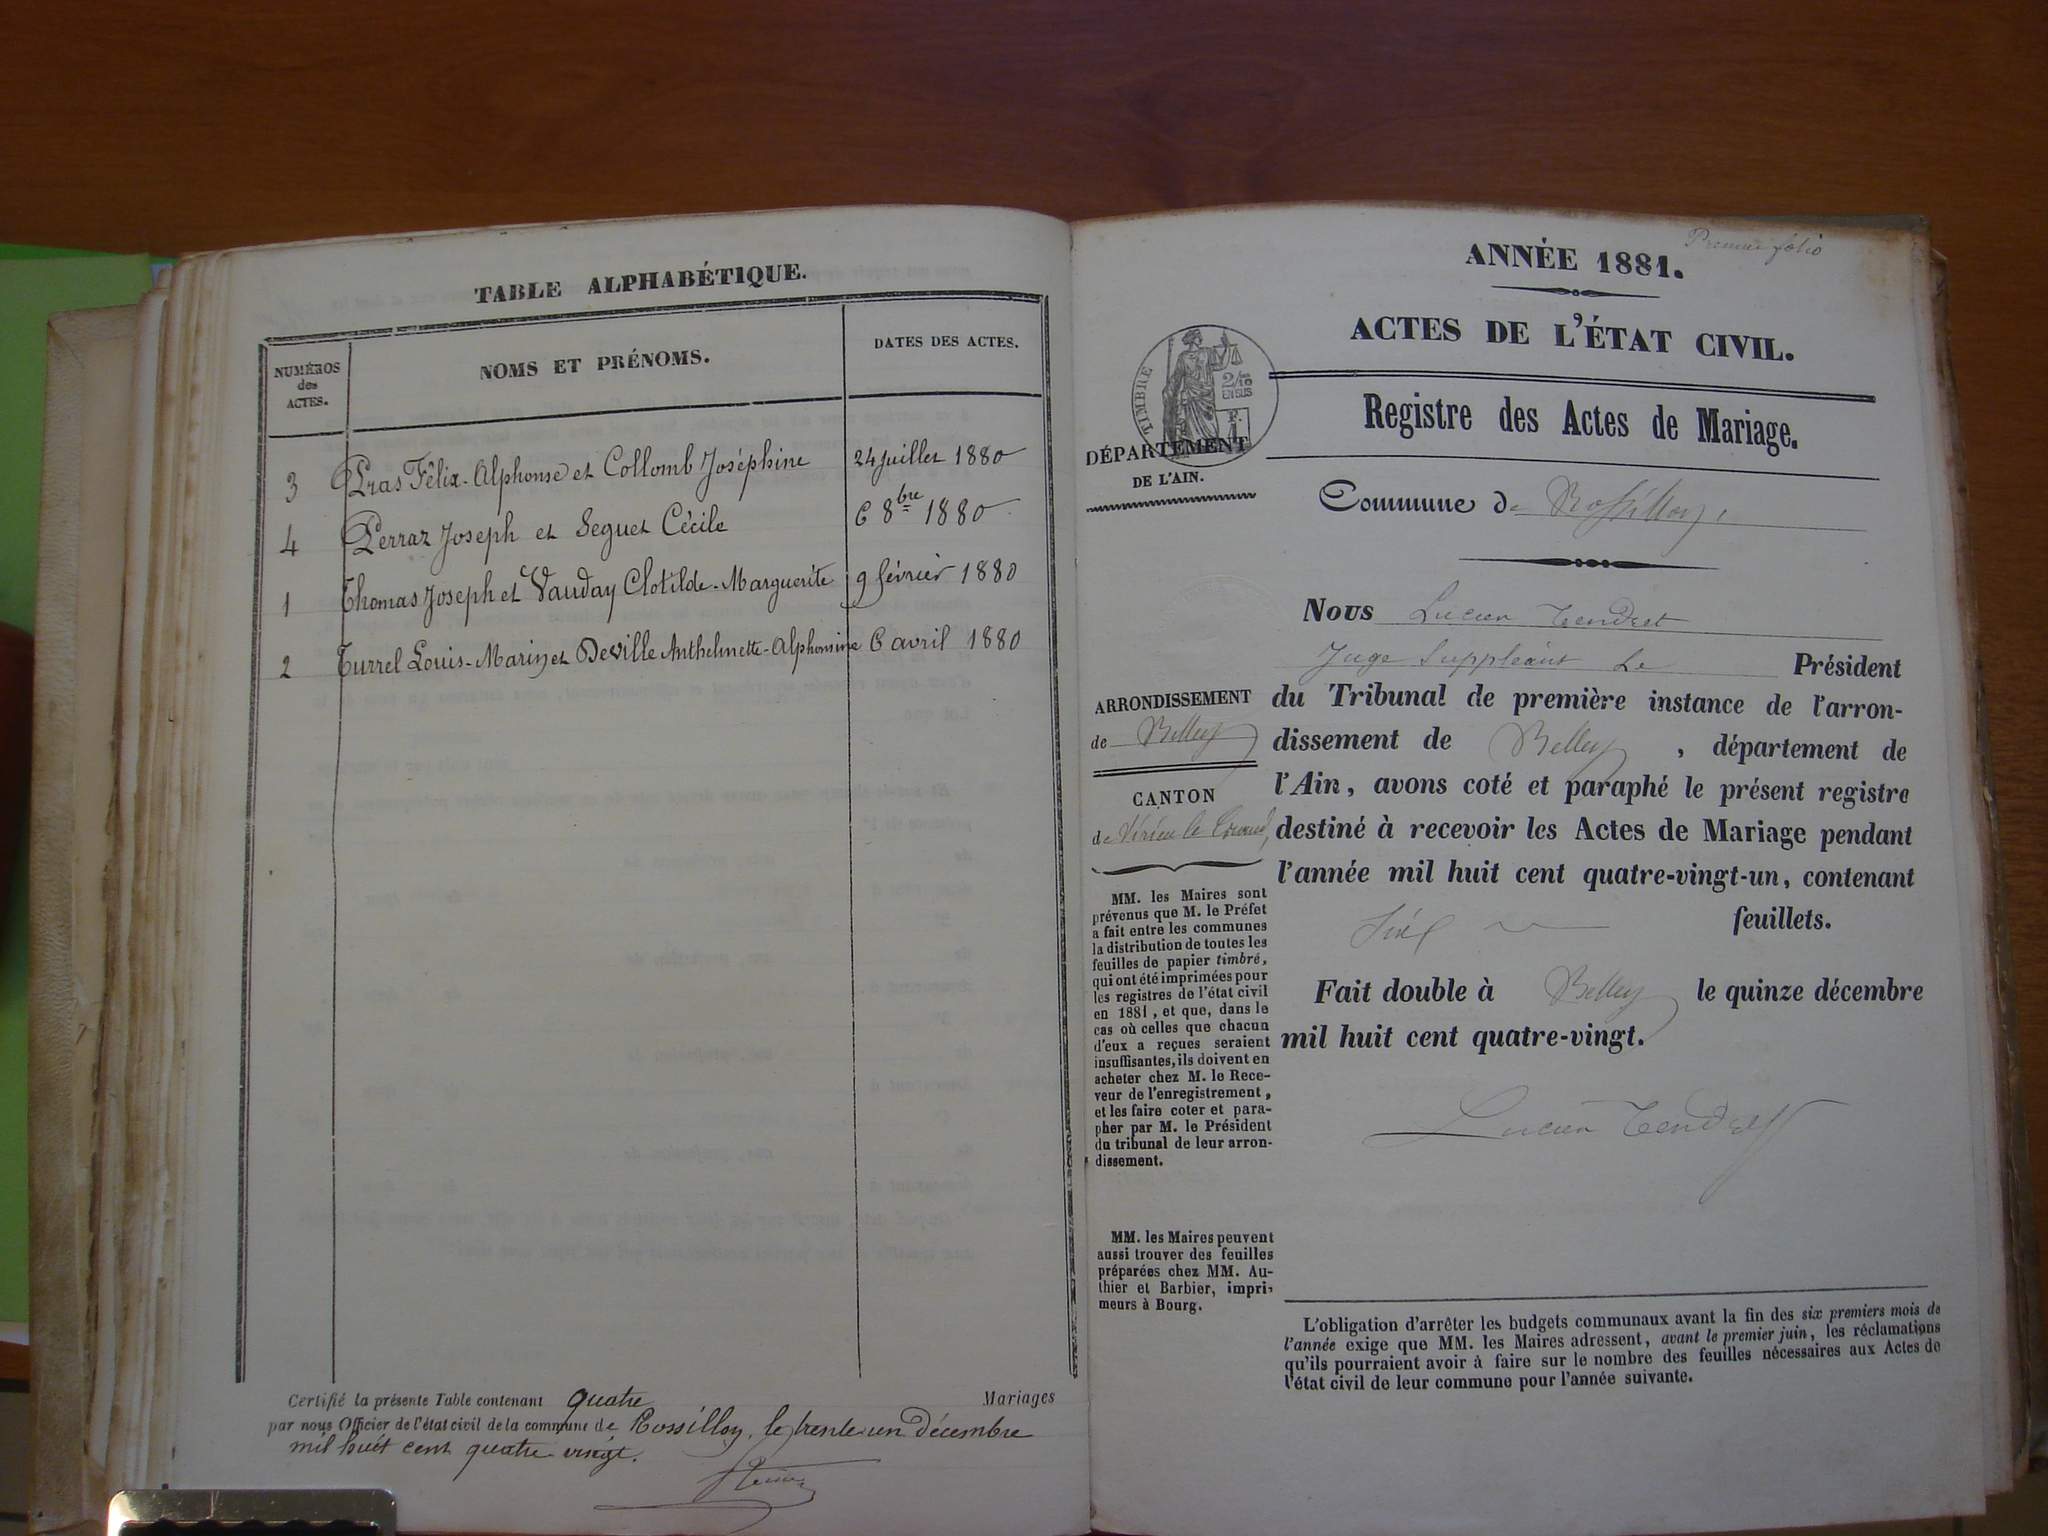 TABLE ALPHABÉTIQUE.
NUMÉROS
des
ACTES.
NOMS ET PRÉNOMS.
DATES DES ACTES.
3 Pras Félix-Alphonse et Collomb Joséphine 24 juillet 1880
4 Perraz Joseph et Seguet Cécile 6 8bre 1880
1 Thomas Joseph et Vauday Clotilde-Marguerite 9 février 1880
2 Turrel Louis-Marin et Deville Anthelmette-Alphonsine 6 avril 1880
Certifié la présente Table contenant quatre Mariages
par nous Officier de l'état civil de la commune de Rossillon, le trente un Décembre
mil huit cent quatre vingt.
Premier folio
ANNÉE 1881.
ACTES DE L'ÉTAT CIVIL.
TIMBRE
2/10
EN SUS
F.
1
DÉPARTEMENT
DE L'AIN.
Registre des Actes de Mariage.
Commune de Rossillon,
Nous Lucien Tendret
Juge Suppléant Le Président
du Tribunal de première instance de l'arron-
dissement de Belley, département de
l'Ain, avons coté et paraphé le présent registre
destiné à recevoir les Actes de Mariage pendant
l'année mil huit cent quatre-vingt-un, contenant
feuillets.
Fait double à Belley le quinze décembre
mil huit cent quatre-vingt.
Lucien Tendret
ARRONDISSEMENT
de Belley
CANTON
de Virieu le Grand,
MM. les Maires sont
prévenus que M. le Préfet
a fait entre les communes
la distribution de toutes les
feuilles de papier timbré,
qui ont été imprimées pour
les registres de l'état civil
en 1881, et que, dans le
cas où celles que chacun
d'eux a reçues seraient
insuffisantes, ils doivent en
acheter chez M. le Rece-
veur de l'enregistrement,
et les faire coter et para-
pher par M. le Président
du tribunal de leur arron-
dissement.
MM. les Maires peuvent
aussi trouver des feuilles
préparées chez MM. Au-
thier et Barbier, impri-
meurs à Bourg.
L'obligation d'arrêter les budgets communaux avant la fin des six premiers mois de
l'année exige que MM. les Maires adressent, avant le premier juin, les réclamations
qu'ils pourraient avoir à faire sur le nombre des feuilles nécessaires aux Actes de
l'état civil de leur commune pour l'année suivante.